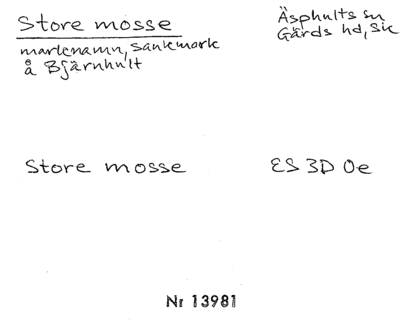 Store mosse
Äsphults sn
Gärds hd, Sk
marknamn, sankmark
å Bjärnhult
Store mosse
ES 3D Oe
Nr 13981